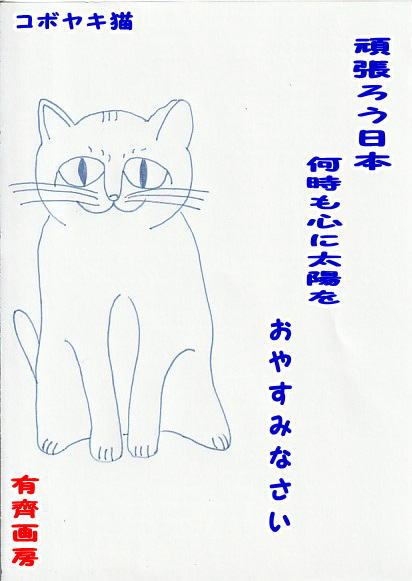 コボヤキ猫
頑張ろう日本
何時も心に太陽を
おやすみなさい
有齊画房